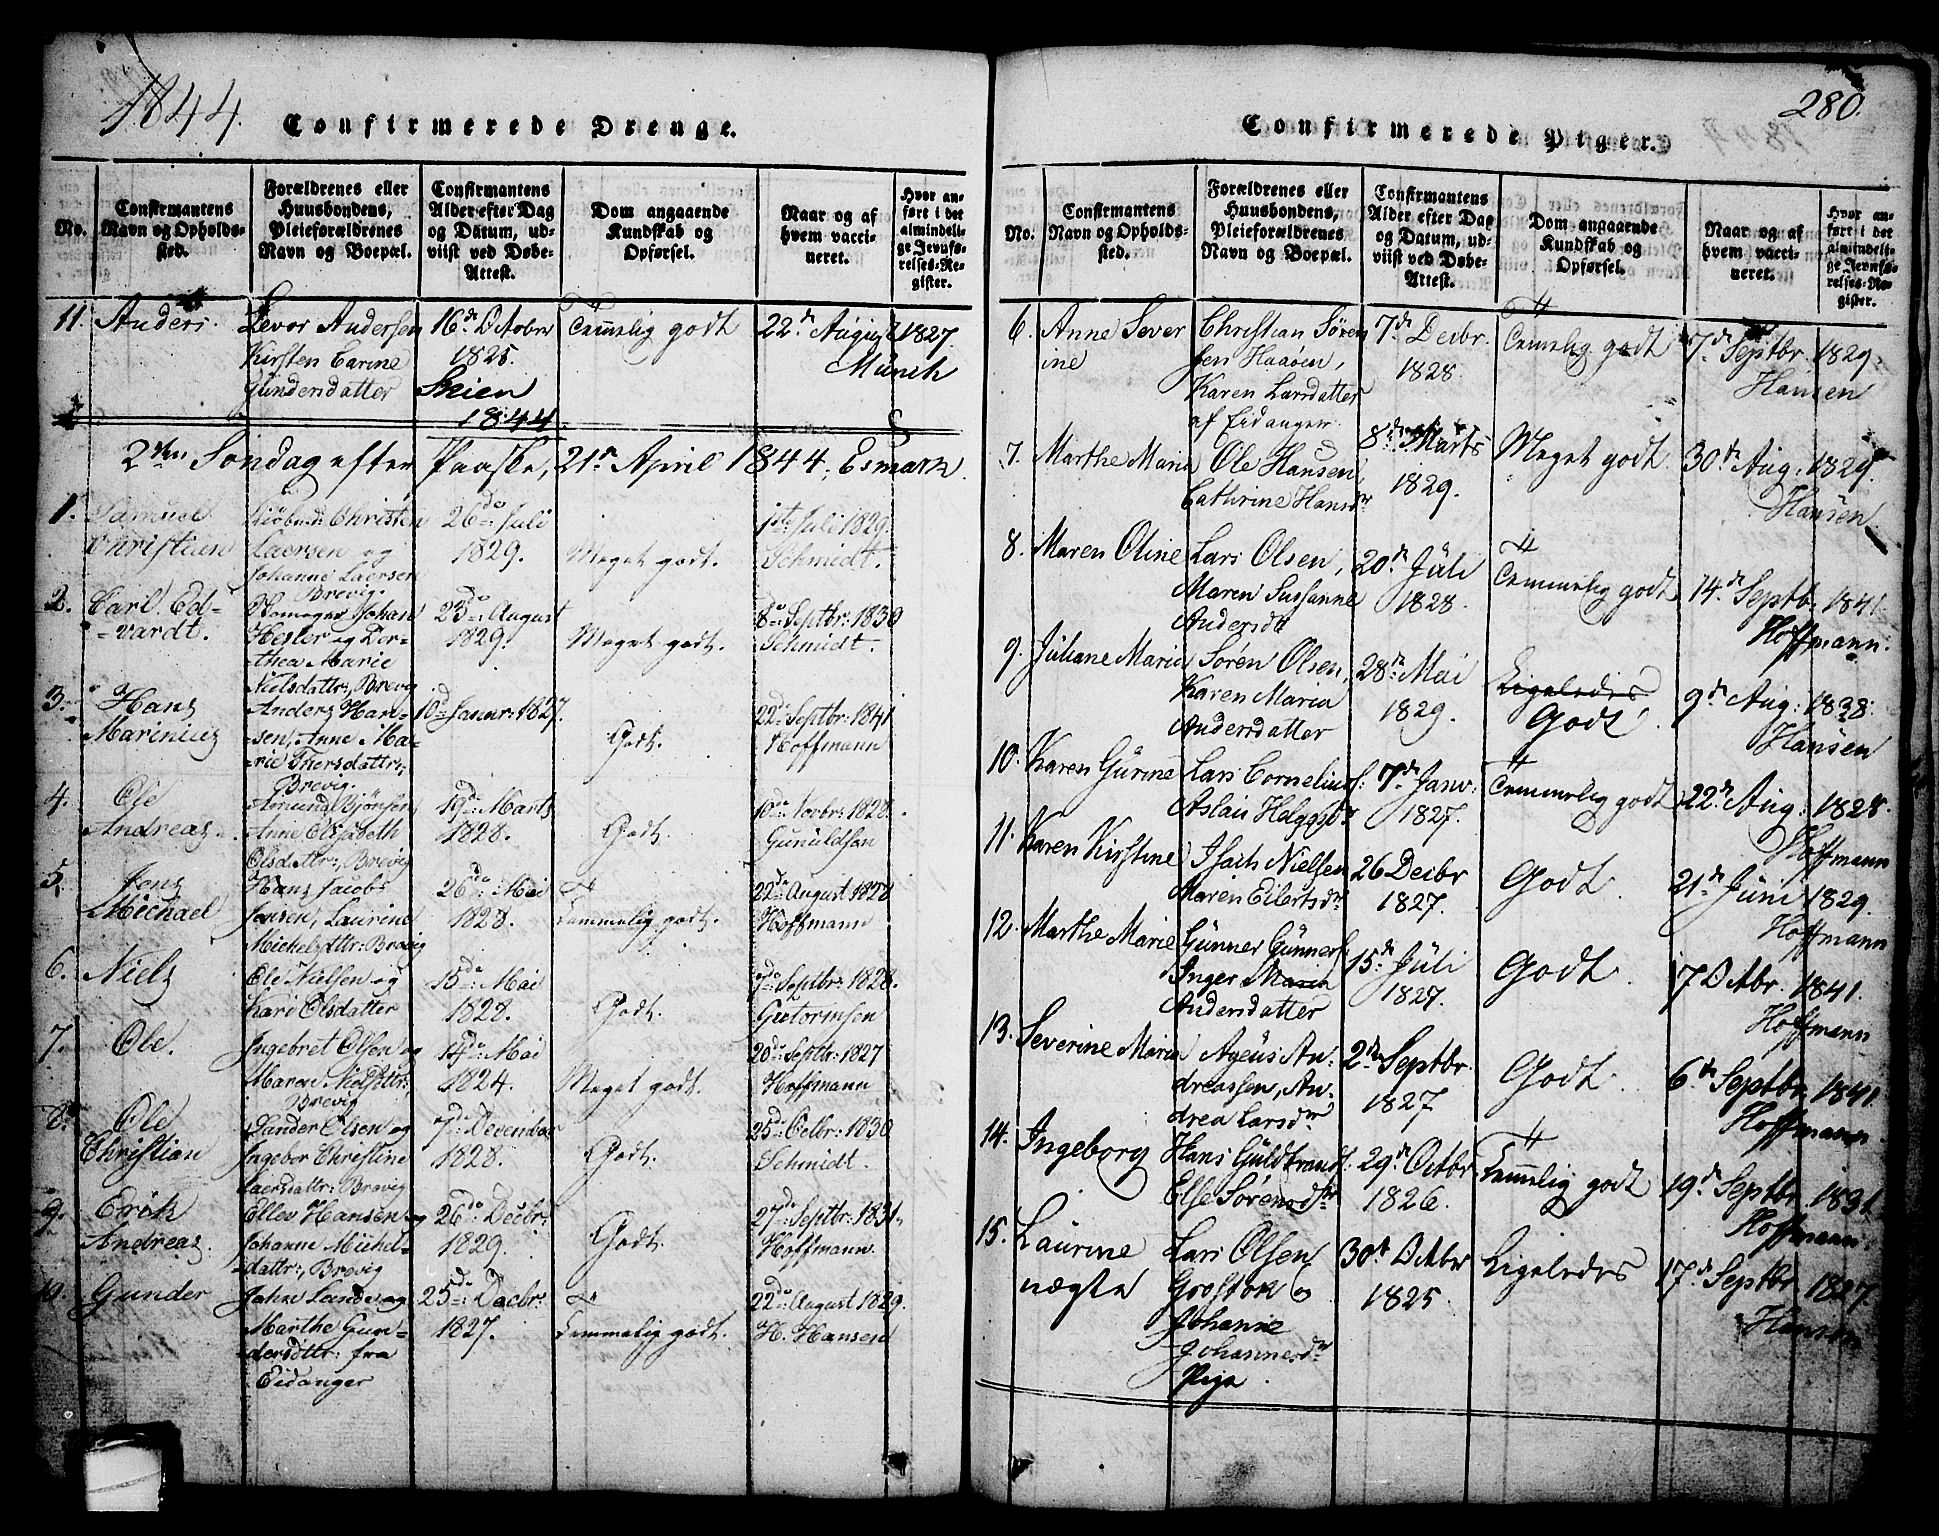 1844.
Confirmerede Drenge.
No.
Confirmantens Navn og Opholdssted.
Forældrenes eller Huusbondens, Pleieforældrenes Navn og Boepæl.
Confirmantens Alder efter Dag og Datum, udviist ved Døbe-Attest.
Dom angaaende Kundskab og Opførsel.
Naar og af hvem vaccineret.
Hvor anført i det almindelige Jevnførelses-Register.
11. Anders.
Levor Andersen
Kirsten Carine
Gundersdatter
16de October
1825.
Skien
1844
Temmelig godt
22de August 1827.
Münch
2den Søndag efter Paaske, 21de April 1844, Esmark.
1. Samuel
Christian
Christen
Laersen og
Johanne Laersen
Brevig.
26de Juli
1829.
Meget godt.
1ste Juli 1829.
Schmidt.
2. Carl Ed-
-vardt.
Johan
Hesler og Dor-
thea Marie
Nielsdattr:, Brevig
23de August
1829.
Meget godt.
8de Septbr: 1830
Schmidt.
3. Hans
Marinius
Anders Han-
-sen, Anne Ma-
-rie
Brevig.
10de Januar: 1827.
Godt.
22de Septbr: 1841
Hoffmann
4. Ole
Andreas.
Amund Bjönsen
Anne Elisabeth
Olsdattr:, Brevig
19de Marts
1828.
Godt.
10de Novbr: 1828.
Gunuldsen
5. Jens
Michael
Hans Jacobs
Jensen, Laurine
Michelsdttr: Brevig
26de Mai
1828.
Temmelig godt.
22de August 1828
Hoffmann
6. Niels
Ole Nielsen og
Kari Olsdatter
15de Mai
1828.
Godt.
7de Septbr: 1828.
Gutormsen
7. Ole.
Ingebret Olsen og
Maren
Brevig
14de Mai
1824.
Meget godt.
20de Septbr: 1827
Hoffmann
8. Ole
Christian
Sander Olsen og
Ingebor Christine
Laersdattr: Brevig
7de December
1828.
Godt.
25de Octbr: 1830
Schmidt.
9. Erik
Andreas.
Ellev Hansen og
Johanne Michel-
-dattr:, Brevig
26de Decbr:
1829.
Godt.
27de Septbr: 1831.
Hoffmann.
10. Gunder
John Lande og
Marthe Gun-
dersdttr: fra
Eidanger
25de Decbr:
1827.
Temmelig godt.
22de August 1829.
H. Hansen
280.
Confirmerede Piger.
No.
Confirmantens Navn og Opholdssted.
Forældrenes eller Huusbondens, Pleieforældrenes Navn og Boepæl.
Confirmantens Alder efter Dag og Datum, udviist ved Døbe-Attest.
Dom angaaende Kundskab og Opførsel.
Naar og af hvem vaccineret.
Hvor anført i det almindelige Jevnførelses-Register.
6. Anne Sever
ine
Christian Sören
sen Haaöen,
Karen Larsdatter
af Eidanger.
7de Decbr.
1828.
Temmelig godt
7de Septbr. 1829.
Hansen
7. Marthe Maria
Ole Hansen,
Cathrine Hansdr
8de Marts
1829.
Meget godt.
30te Aug: 1829.
Hansen
8. Maren Oline
Lars Olsen,
Maren Susanne
Andersdtr
20de Juli
1828.
Temmelig godt
14de Septb. 1841.
Hoffmann.
9. Juliane Maria
Sören Olsen,
Karen Maria
Andersdatter
28de Mai
1829.
Ligeledes
Godt.
9de Aug: 1838.
Hansen
10. Karen Gurine
Lars Corneliuss:
Aslau
7de Janv:
1827.
Temmelig godt
22de Aug: 1828.
Hoffmann
11. Karen Kirstine
Isach Nielsen
Maren Eilertsdr
26 Decbr
1827.
Godt.
21de Juni 1829.
Hoffmann
12. Marthe Marie
Gunner Gunners
Inger Maria
Andersdatter
15de Juli
1827.
Godt.
17 Octbr. 1841.
Hoffmann
13. Severine Maria
Ageus An:
dreassen, An:
drea Larsdr
2de Septbr.
1827
Godt.
6te Septbr. 1841.
Hoffmann.
14. Ingeborg
Hans Guldbrands:
Else Sörensdtr
29de Octbr
1826.
Temmelig godt
19de Septbr. 1831.
Hoffmann.
15. Laurine
uægte
Lars Olsen
Grostok og
Johanne
Johannesdr
Pige.
30te Octbr
1825.
Ligeledes
17de Septbr. 1827.
Hansen